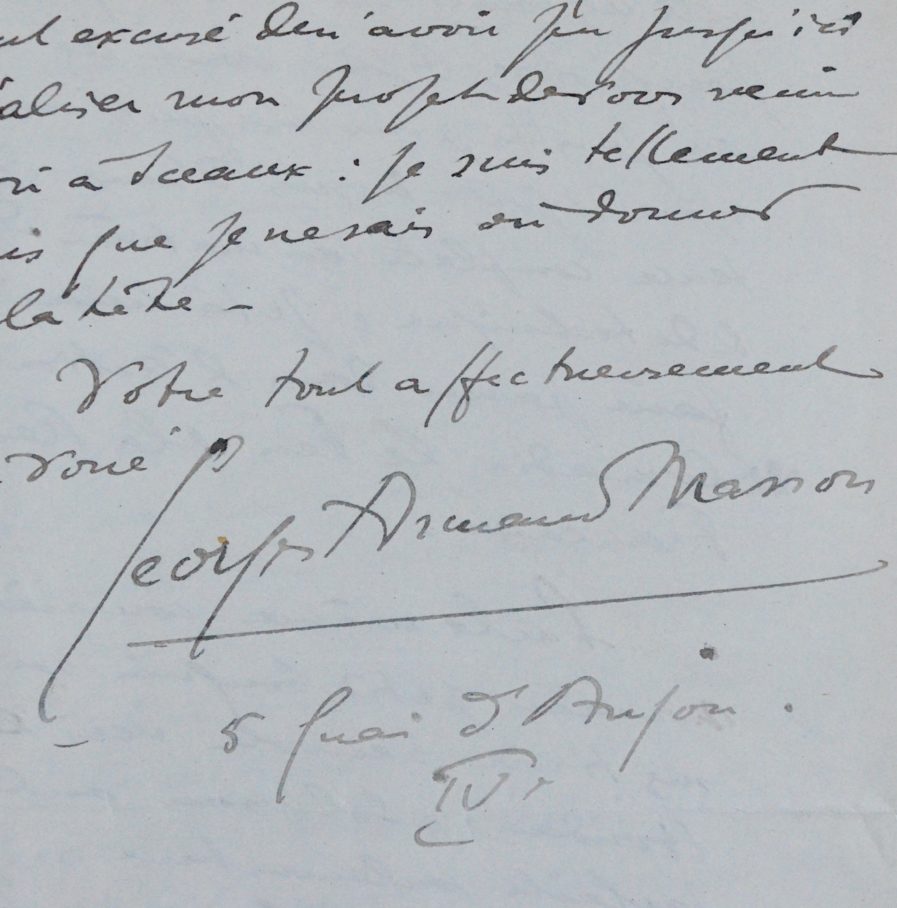 excusé de n'avoir pu jusqu'ici
mon projet de vous venir
à Sceaux : je suis tellement
que je ne sais où donner
la tête –
Votre tout affectueusement
voué
Georges Armand Masson
5 Quai d'Anjou .
IVe